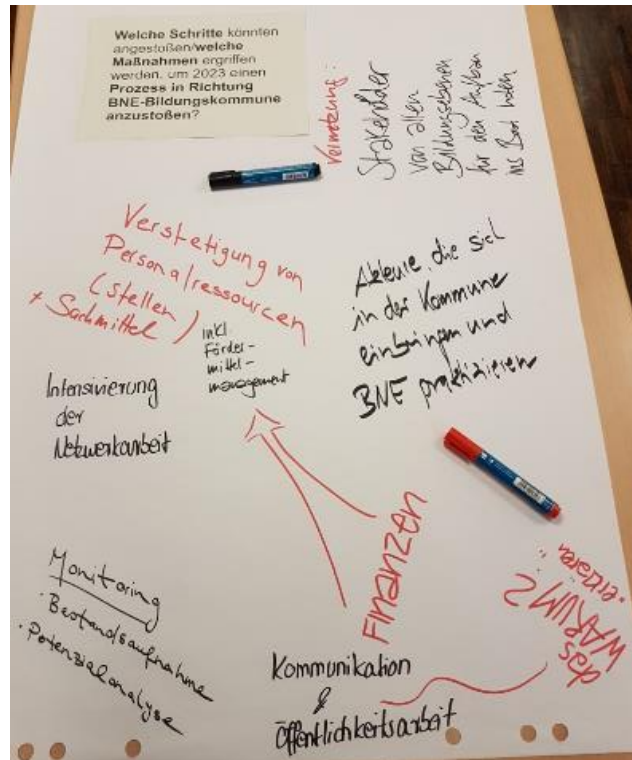 Welche Schritte könnten
angestoßen/welche
Maßnahmen ergriffen
werden, um 2023 einen
Prozess in Richtung
BNE-Bildungskommune
anzustoßen?
Vernetzung:
Stakeholder
von allen
Bildungsebenen
für den Aufbau
ins Boot holen
Verstetigung von
Personalressourcen
(Stellen)
+ Sachmittel
inkl.
Förder-
mittel-
management
Akteure, die sich
in der Kommune
einbringen und
BNE praktizieren
Intensivierung
der
Netzwerkarbeit
Finanzen
Monitoring
· Bestandsaufnahme
· Potenzialanalyse
Kommunikation
&
Öffentlichkeitsarbeit
das
WARUM?
erklären